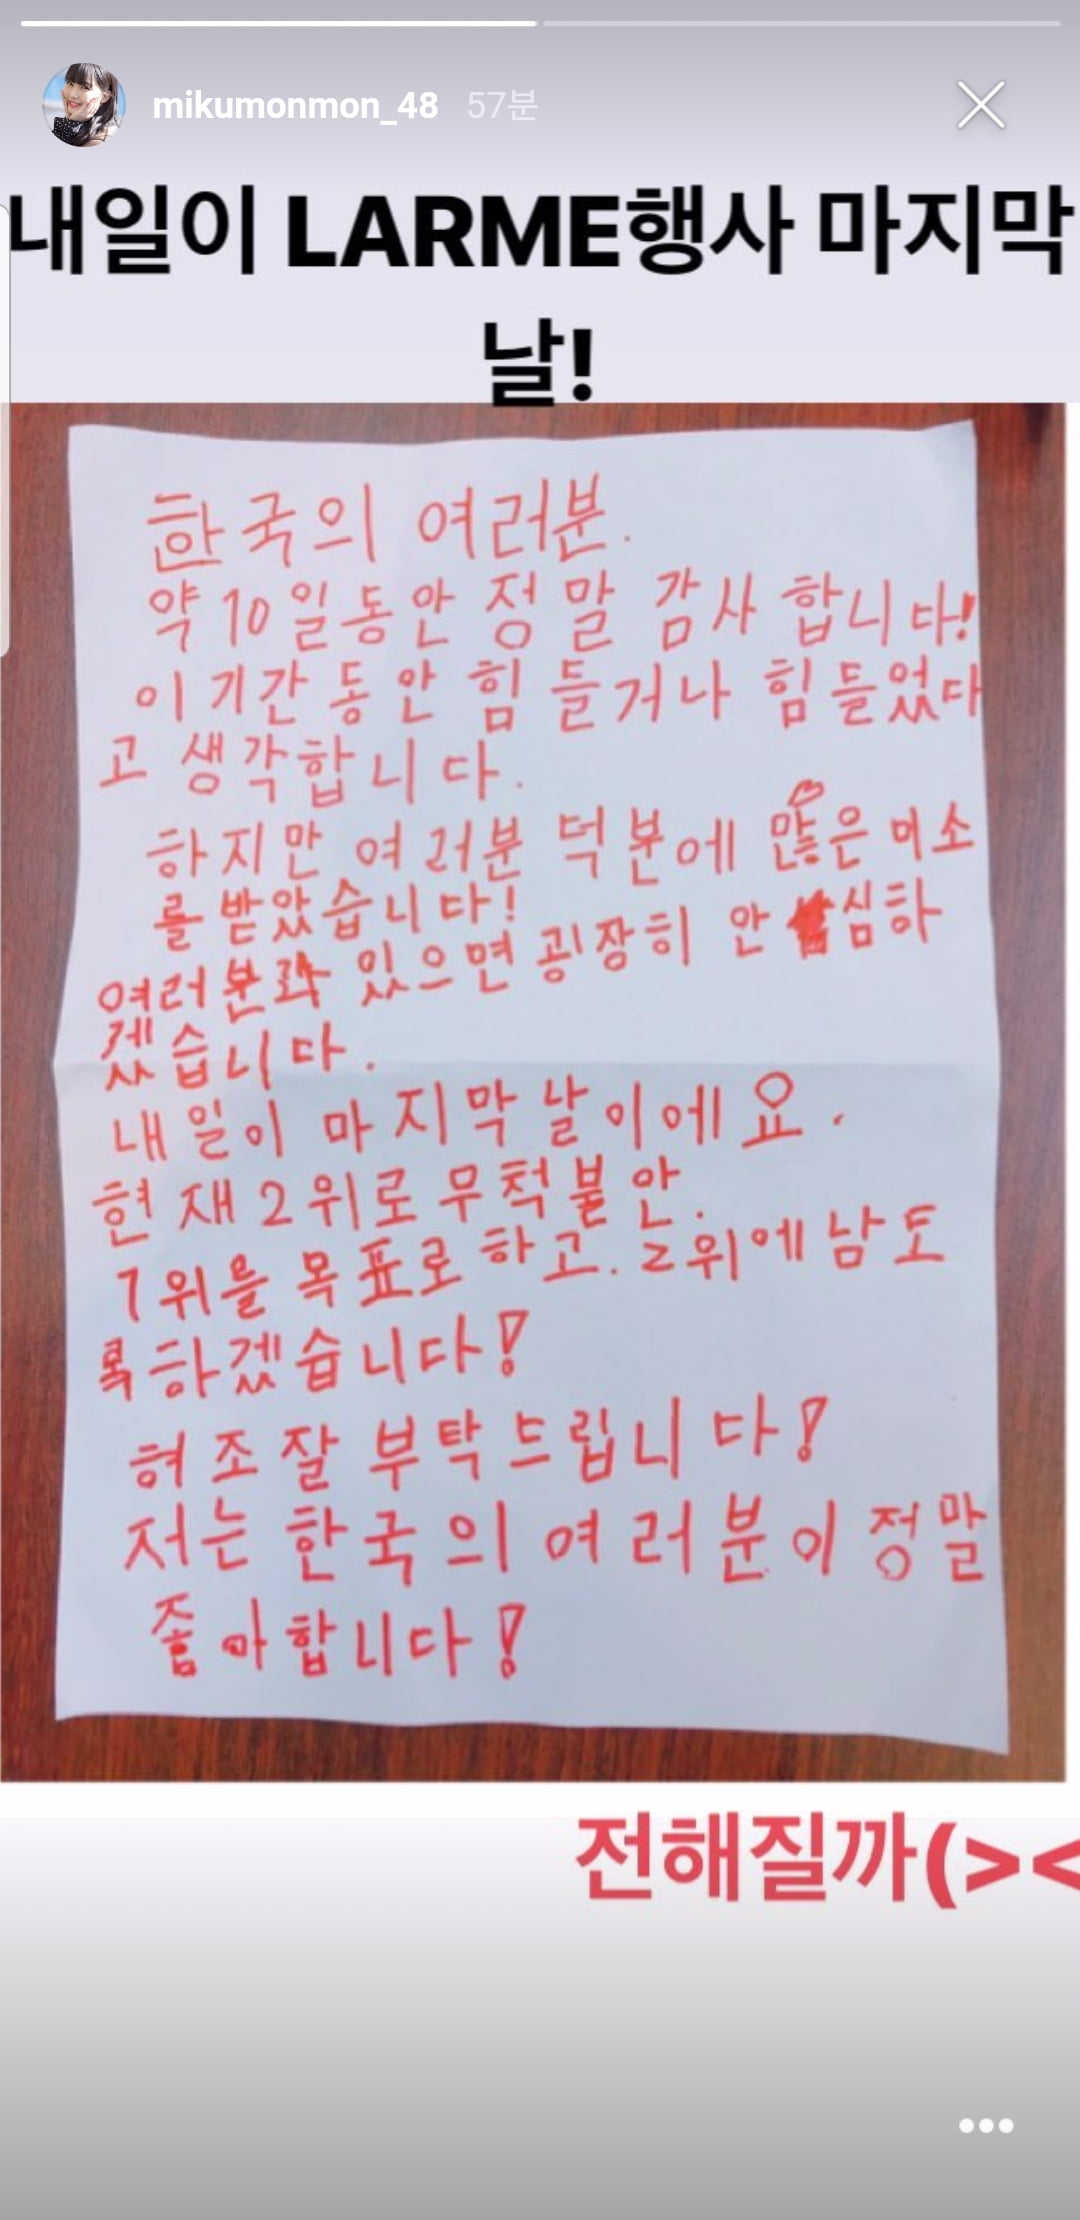 mikumonmon_48 57분
내일이 LARME행사 마지막
날!
한국의 여러분.
약 10일동안 정말 감사 합니다!
이 기간 동안 힘 들거나 힘들었다
고 생각합니다.
하지만 여러분 덕분에 많은 미소
를 받았습니다!
여러분과 있으면 굉장히 안 심하
겠습니다.
내일이 마지막날이에요.
현재 2위로 무척불안.
1위를 목표로 하고. 2위에 남도
록하겠습니다!
혀조잘 부탁드립니다!
저는 한국의 여러분이 정말
좋아합니다!
전해질까(><